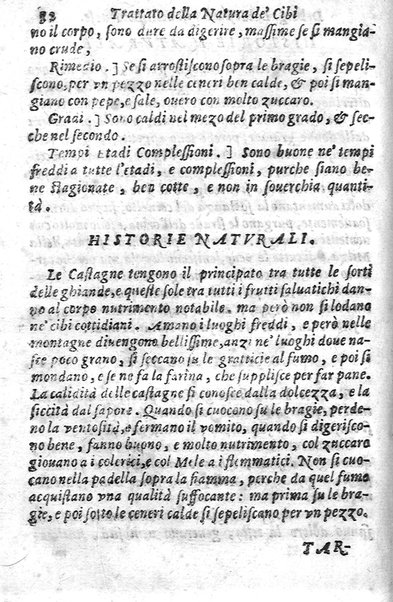 82 Trattato della Natura de' Cibi
no il corpo, sono dure da digerire, massime se si mangia-
no crude,
Rimedio.] Se si arrostiscono sopra le bragie, si sepeli-
scono, per vn pezzo nelle ceneri ben calde, & poi si man-
giano con pepe, e sale, ouero con molto zuccaro.
Gradi.] Sono caldi nel mezo del primo grado, & sec-
che nel secondo.
Tempi Etadi Complessioni.] Sono buone ne' tempi
freddi a tutte l'etadi, e complessioni, purche siano be-
ne stagionate, ben cotte, e non in souerchia quanti-
tà.
HISTORIE NATVRALI.
Le Castagne tengono il principato tra tutte le sorti
delle ghiande, e queste sole tra tutti i frutti saluatichi dan-
no al corpo nutrimento notabile. ma però non si lodano
ne' cibi cottidiani. Amano i luoghi freddi, e però nelle
montagne diuengono bellissime, anzi ne' luoghi doue na-
sce poco grano, si seccano su le gratticie al fumo, e poi si
mondano, e se ne fa la farina, che supplisce per far pane.
La calidità delle castagne si conosce dalla dolcezza, e la
siccità dal sapore. Quando si cuocono su le bragie, perde-
no la ventosità, e fermano il vomito, quando si digerisco-
no bene, fanno buono, e molto nutrimento, col zuccaro
giouano a i colerici, e col Mele a i flemmatici. Non si cuo-
cano nella padella sopra la fiamma, perche da quel fumo
acquistano vna qualità suffocante: ma prima su le bra-
gie, e poi sotto le ceneri calde si sepeliscano per vn pezzo.
TAR-